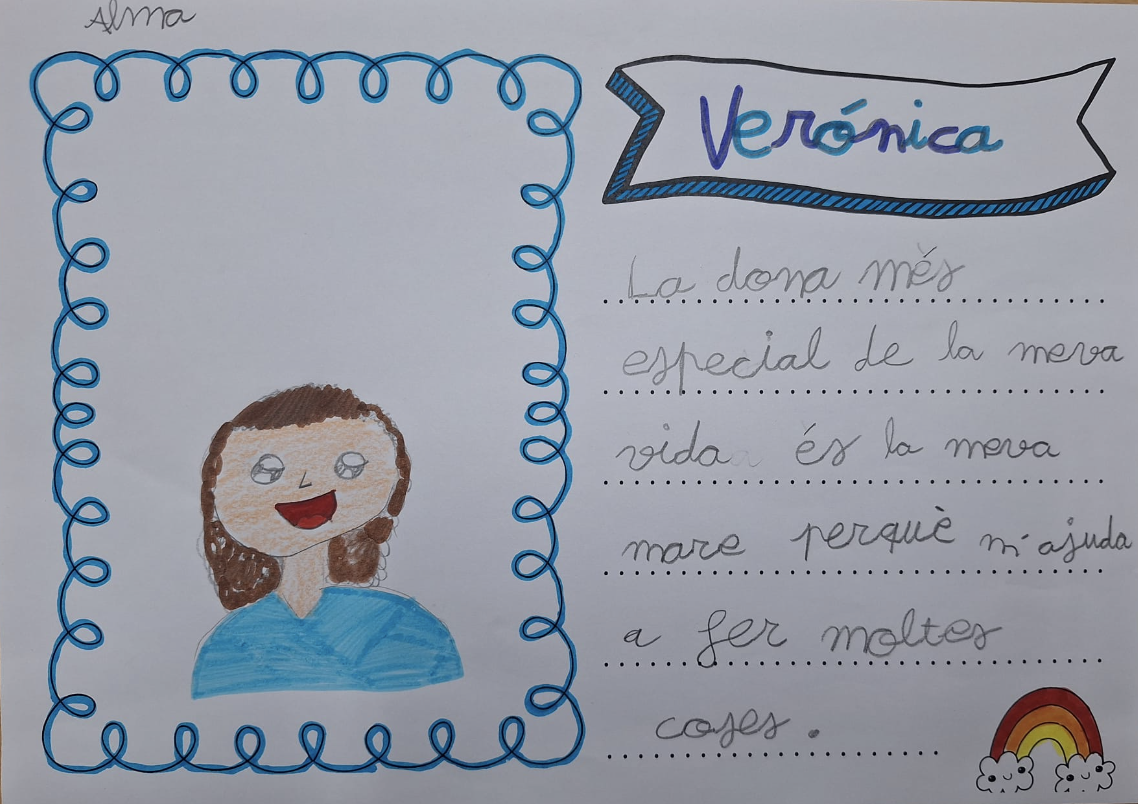 Alma
Verónica
La dona més
especial de la meva
vida és la meva
mare perquè m'ajuda
a fer moltes
coses.